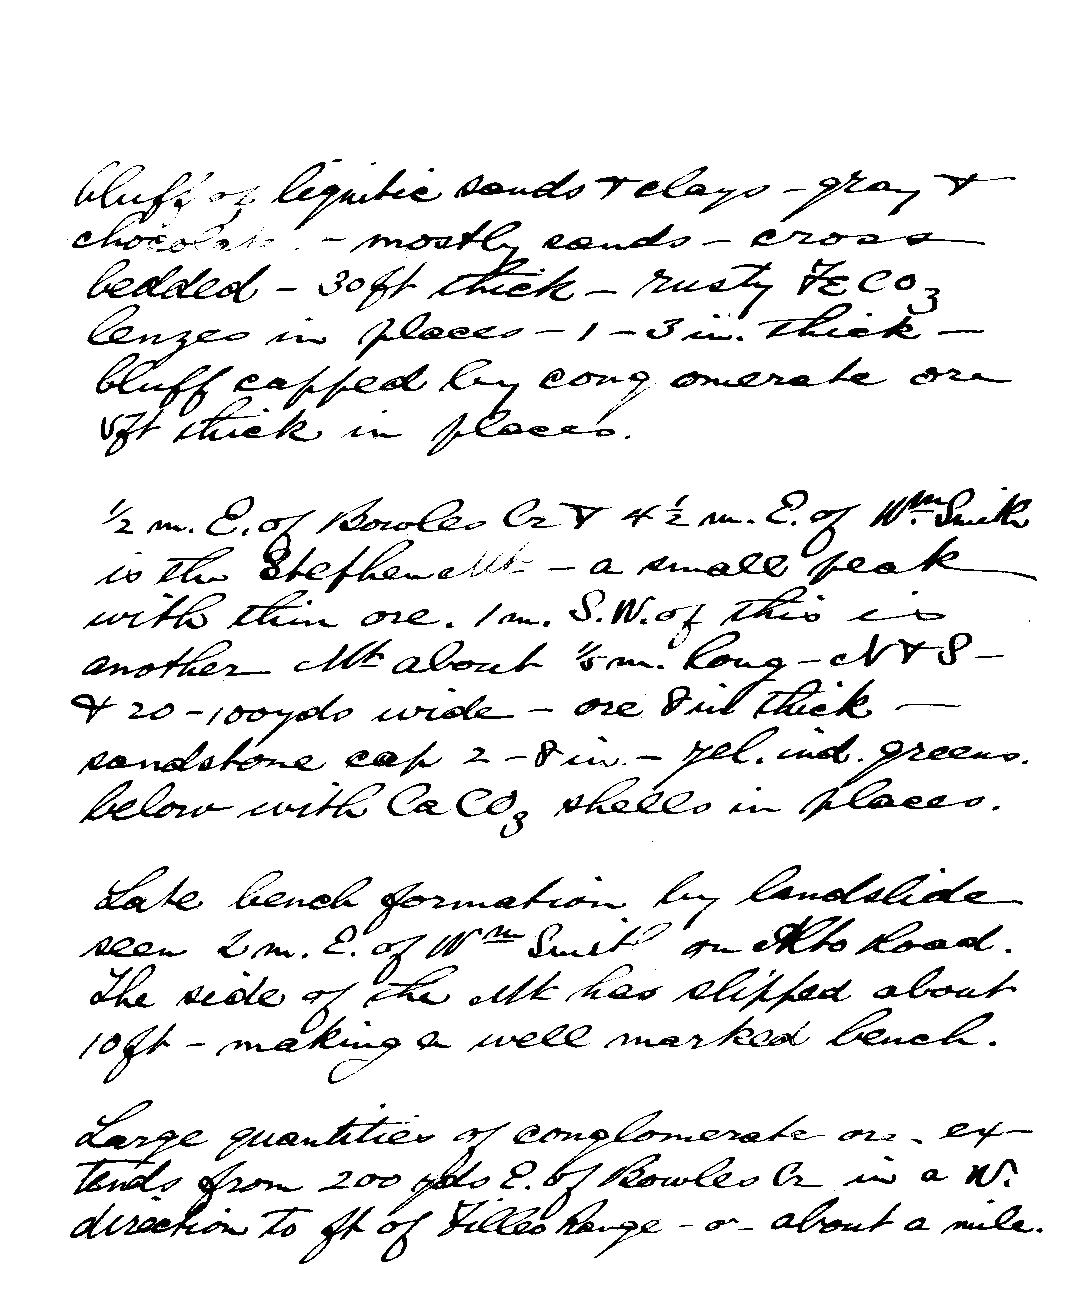 bluff of lignitic sands & clays - gray &
chocolate - mostly sands - cross
bedded - 30ft thick - rusty FeCO3
lenzes in places - 1 - 3 in. thick -
bluff capped by conglomerate ore
5ft thick in places.
1/2 m. E. of Bowles Cr & 4 1/2 m. E. of Wm Smith
is the Stephen Mt - a small peak
with thin ore. 1 m. S.W. of this is
another Mt about m. long - N & S -
& 20 - 100yds wide - ore 8 in thick -
sandstone cap 2 - 8 in. - yel. ind. greens.
below with CaCO3 shells in places.
Late bench formation by landslide
seen 2 m. E. of Wm Smith on Alto Road.
The side of the Mt has slipped about
10ft - making a well marked bench.
Large quantities of conglomerate ore - ex-
tends from 200 yds E. of Bowles Cr in a W.
direction to ft of Range - or - about a mile.